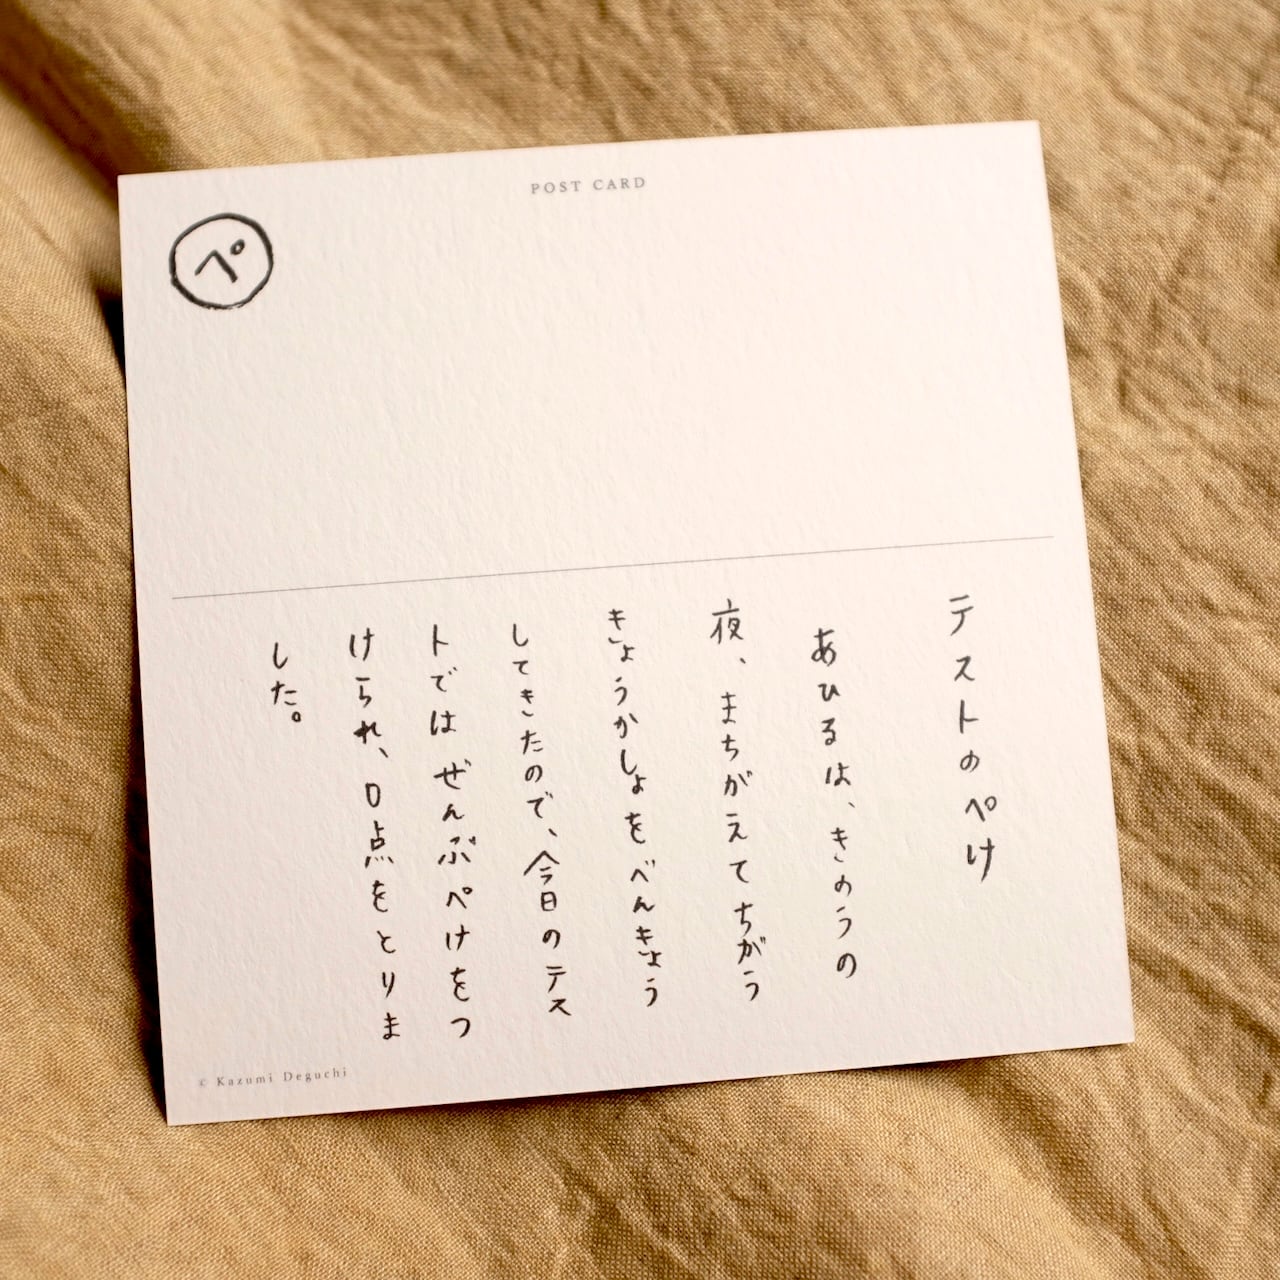 POST CARD
ぺ
テストのぺけ
あひるは、きのうの
夜、まちがえてちがう
きょうかしょをべんきょう
してきたので、今日のテス
トではぜんぶぺけをつ
けられ、0点をとりま
した。
© Kazumi Deguchi